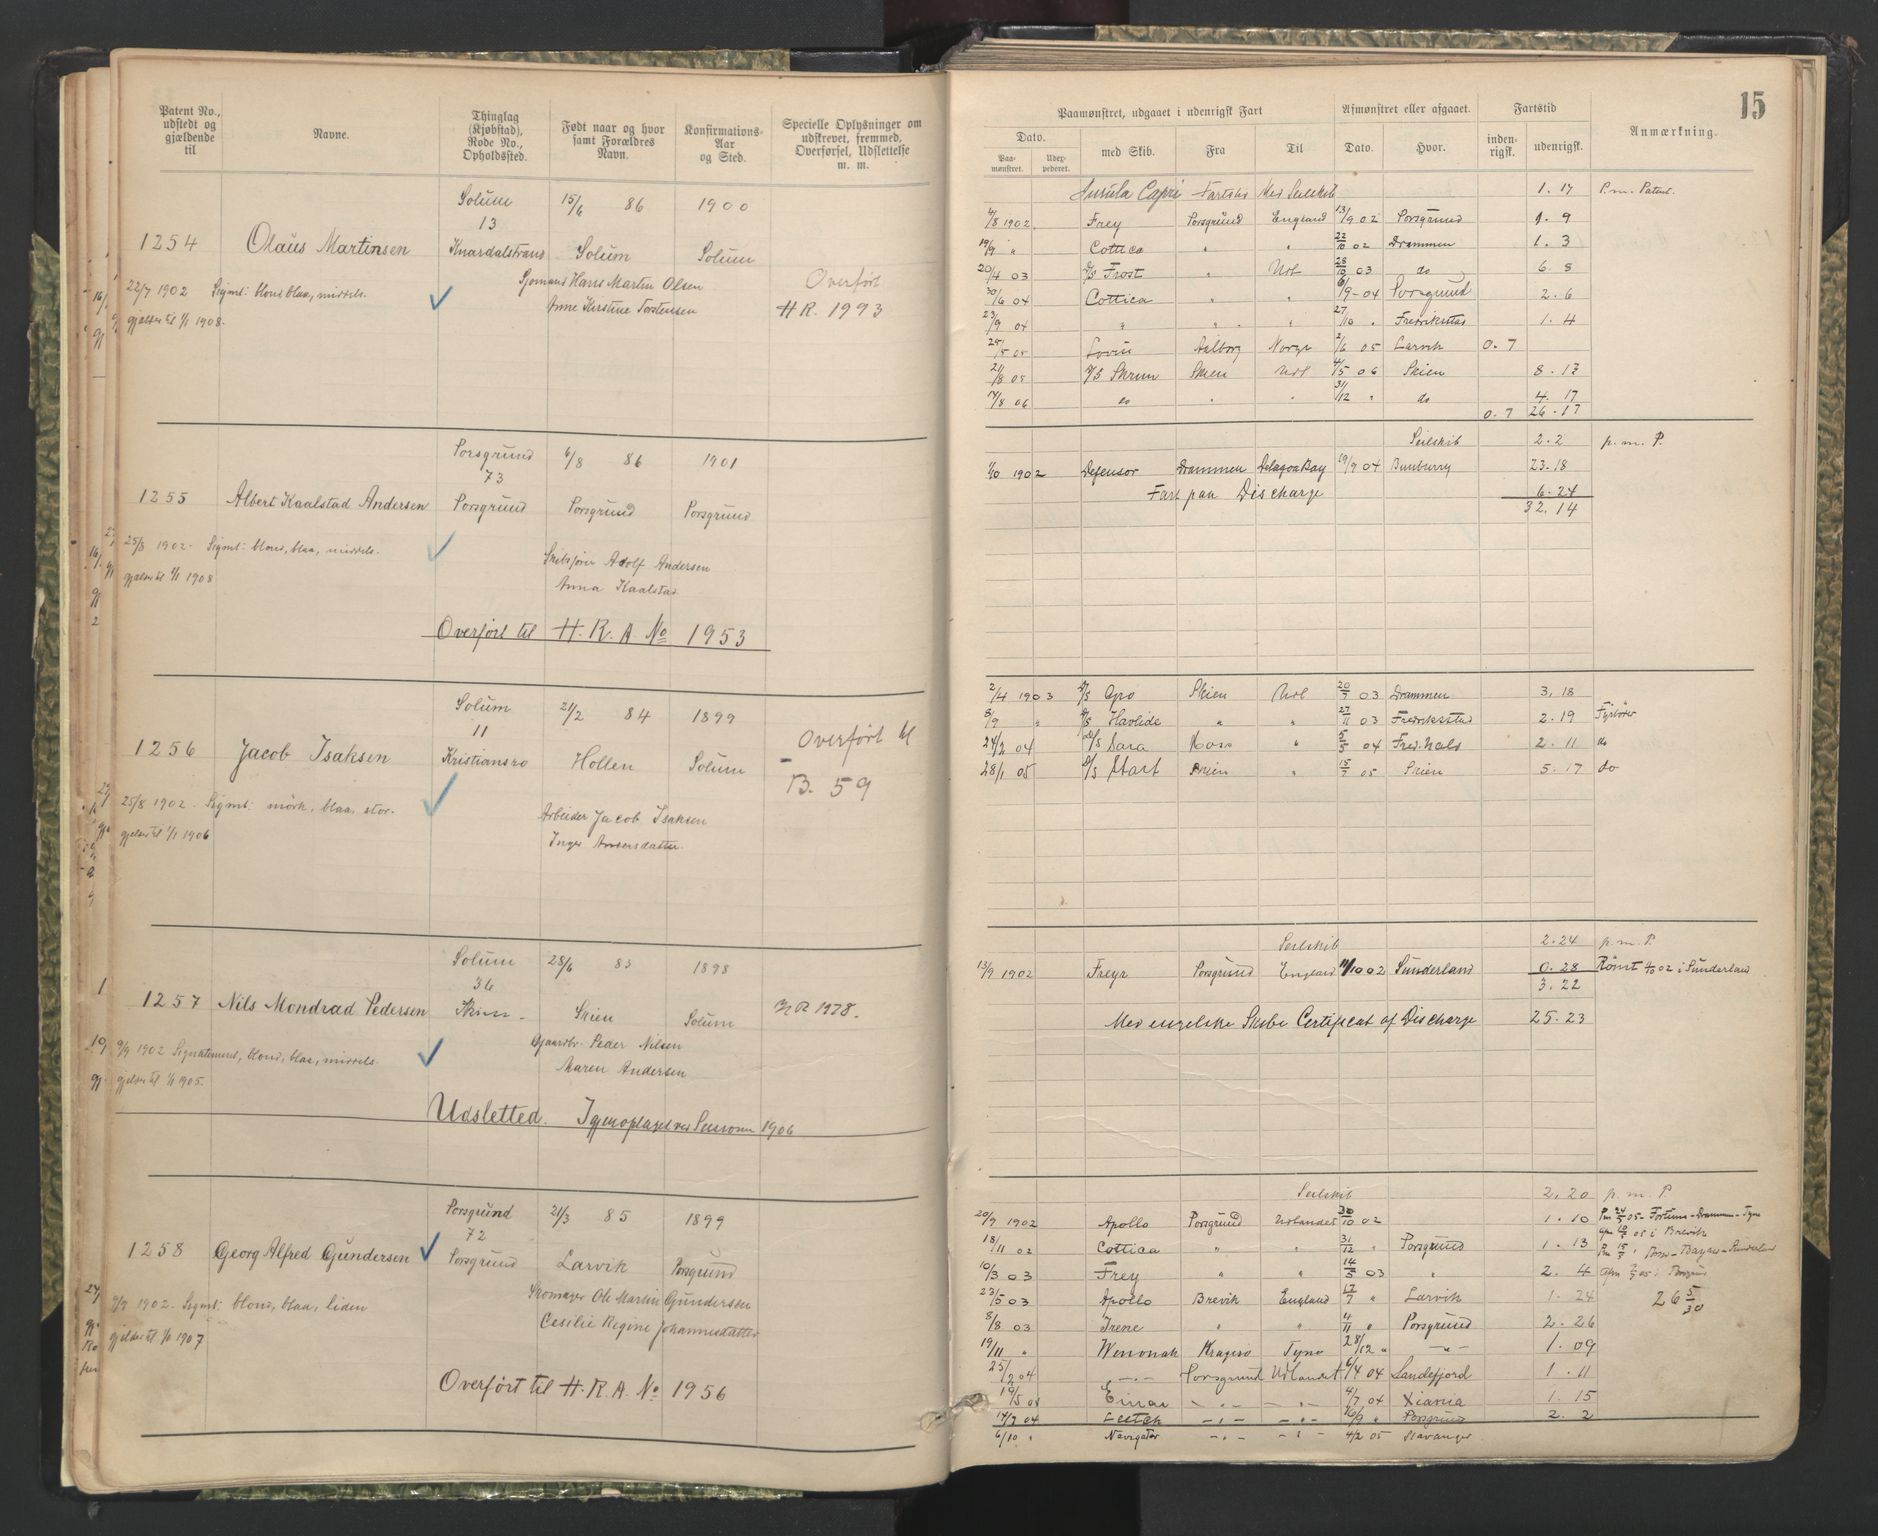 Patent No., udstedt og gjældende til
Navne.
Thinglag (Kjøbstad), Rode No., Opholdssted.
Født naar og hvor samt Forældres Navn.
Konfirmations-Aar og Sted.
Specielle Oplysninger om udskrevet, fremmed, Overførsel, Udslettelse m. m.
Solum 15/6 86 1900
13
1254 Olaus Martinsen Knardalstrand Solum Solum
22/7 1902 Signt: blond, blaa, middels. Sjømand Hans Martin Olsen Overført
gjælder til 1/1 1908. Anne Kirstine Torstensen H R. 1993
Porsgrund 6/8 86 1901
73
1255 Albert Kaalstad Andersen Porsgrund Porsgrund Porsgrund
25/8 1902. Signt: blond, blaa, middels. Skibsfører Adolf Andersen
gjælder til 1/1 1908 Anna Kaalstad
Overført til H. R. A. No 1953
Solum 21/2 84 1899
11
1256 Jacob Isaksen Kristiansro Hollen Solum Overført til
B. 59
25/8 1902. Signt: mörk, blaa, stor. Arbeider Jacob Isaksen
gjelder til 1/1 1906 Inger Andersdatter.
Solum 28/6 83 1898
36
1257 Nils Mondrad Pedersen Skien Skien Solum H R 1928.
9/9 1902 Signalement, blond, blaa, middels. Gaardbr. Peder Nilsen
gjelder til 1/1 1905. Maren Andersen
Udsletted. Igjenoptaget ved Session 1906
Porsgrund 21/3 85 1899
72
1258 Georg Alfred Gundersen Porsgrund Larvik Porsgrund
9/9 1902. Signt: blond, blaa, liden Skomager Ole Martin Gundersen
gjelder til 1/1 1907 Cesilie Regine Johannesdatter
Overført til H. R. A. No 1956
15
Paamønstret, udgaaet i udenrigsk Fart
Afmønstret eller afgaaet.
Fartstid
Anmærkning.
Dato.
Paa-mønstret.
Udex-pederet.
med Skib.
Fra
Til
Dato.
Hvor.
inden-rigsk.
udenrigsk.
Insula Capri Fartstid Med Seilskib 1. 17 P. m. Patent.
4/8 1902. Frey Porsgrund England 13/9 02 Porsgrund 1. 9
19/9 " Cottica " " 22/10 02 Drammen 1. 3
20/4 03 D/S Frost " Udl 28/10 03 do 6. 8
30/6 04 Cottica " " 6/9 - 04 Porsgrund 2. 6
23/9 04 " " " 27/10 " Fredriksstad 1. 4
25/5 05 Lovise Aalborg Norge 2/6 05 Larvik 0. 7
21/8 05 D/S Skrim Skien Udl 4/5 06 Skien 8. 13
14/8 06 do " " 31/12 " do 4. 17
0. 7 26. 17
Seilskib 2. 2 p. m. P.
1/10 1902 Defensor Drammen Delagoa Bay 19/9 04 Bunburry 23. 18
Fart paa Discharge 6. 24
32. 14
2/4 1903 D/S Gro Skien Udl 20/7 03 Drammen 3. 18
8/9 " D/S Havlide " " 27/11 03 Fredriksstad 2. 19 Fyrbøder
24/2 04 D/S Sara Moss " 5/5 04 Fred.hald 2. 11 do
28/1 05 D/S Start Skien " 15/7 05 Skien 5. 17 do
Seilskib 2. 24 p. m. P.
13/9 1902 Freyr Porsgrund England 11/10 02 Sunderland 0. 28 Römt 4/10 02 i Sunderland
3. 22
Med engelske Skibe Certificat of Discharge 25. 23
Seilskib 2. 20 p. m. P.
20/9 1902 Apollo Porsgrund Udlandet 30/10 02 1. 10 Pm 24/5 05 - Fortuna - Drammen - Tyne
18/11 02 Cottica " " 31/12 " Porsgrund 1. 13
10/3 03 Frey " " 14/5 03 " 2. 4
23/5 03 Apollo Brevik England 17/7 " Larvik 1. 24 26 5/30
8/8 03 Irene " " 4/11 " Porsgrund 2. 26
19/11 " Wenonah Kragerø Tyne 28/12 " - " - 1. 09
25/2 04 - " - Porsgrund Udlandet 6/4 04 Sandefjord 1. 11
19/5 04 Einar - " - - " - 4/7 04 Xiania 1. 15
14/7 04 - " - - " - 16/9 " Porsgrund 2. 2
6/10 " Navigatør - " - - " - 4/2 05 Stavanger